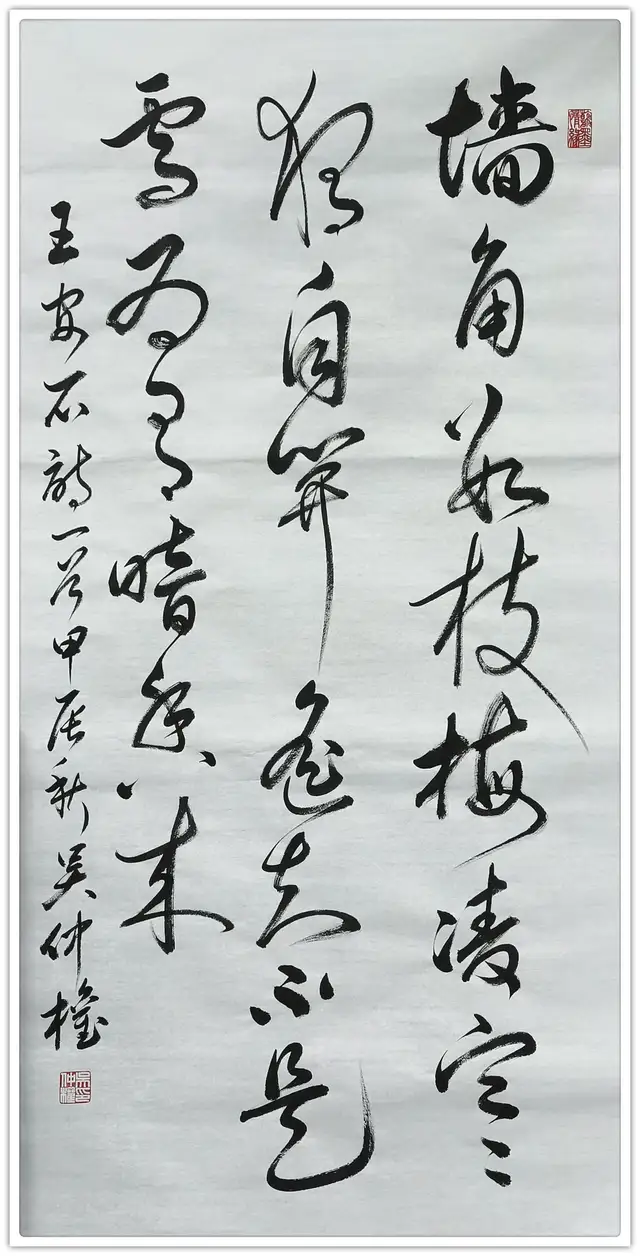 墙角数枝梅凌寒
独自開遥知不是
雪为有暗香来
王安石诗一首甲辰秋吴仲權